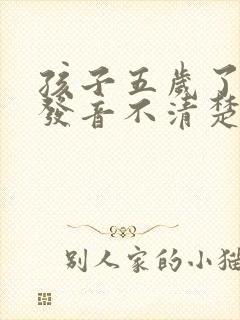 孩子五歲了
發音不清楚
別人家的小貓